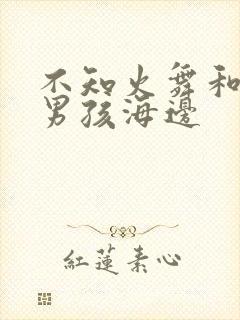 不知火舞和
男孩海邊
紅蓮素心